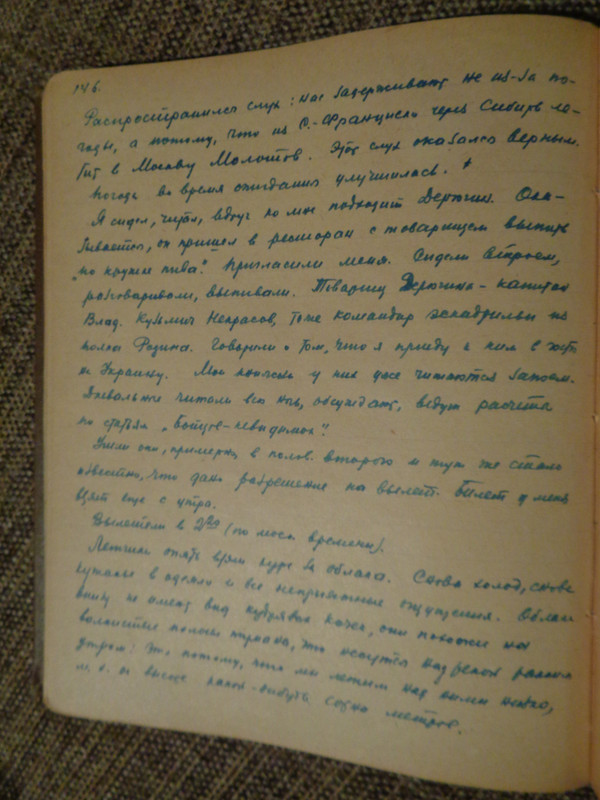 146.
Распространился слух: нас задерживают не из-за по-
годы, а потому, что из С.-Франциско через Сибирь ле-
тит в Москву Молотов. Этот слух оказался верным.
Погода во время ожидания улучшилась.
Я сидел, читал, вдруг ко мне подходит Дерюжин. Ока-
зывается, он пришел в ресторан с товарищем выпить
„по кружке пива." Пригласили меня. Сидели втроем,
разговаривали, выпивали. Товарищ Дерюжина - капитан
Влад. Кузьмич Некрасов, тоже командир эскадрильи из
полка Родина. Говорили о том, что я приеду к ним в
на Украину. Мои у них уже читаются запоем.
читали всю ночь, обсуждать, ведут расчеты
по статьям „Бойцов-невидимок".
Ушли они, примерно, в полов. второго и тут же стало
известно, что дано разрешение на вылет. Билет у меня
взят еще с утра.
Вылетели в 2 (по моск времени).
Летчики опять куда за облака. Снова холод, снова
в одеяло и все неприятные ощущения. Облака
внизу не имеют вид кудрявых они похожи на
волнистые полосы тумана, что над рекой ранним
утром: это потому, что мы летим над ними низко,
м. б. не выше каких-нибудь сотни метров.